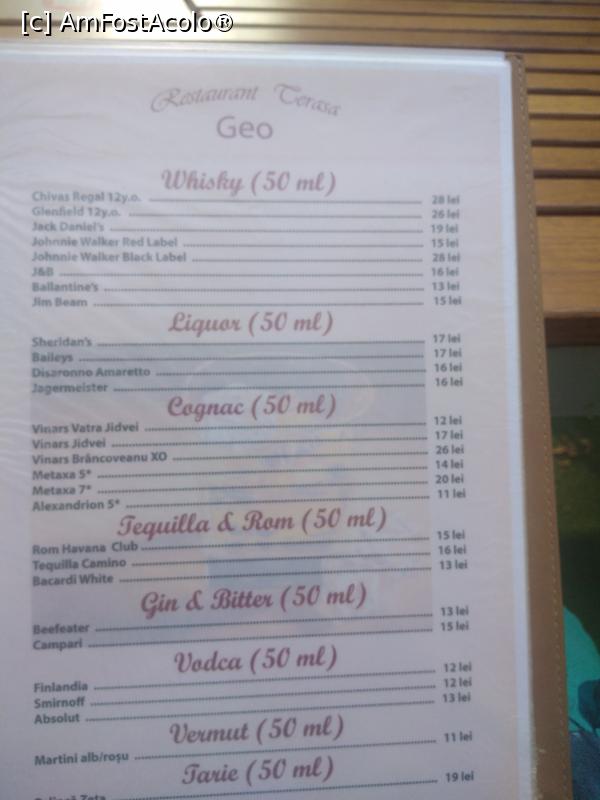 [c] AmFostAcolo®
Restaurant Terasa
Geo
Whisky (50 ml)
Chivas Regal 12y.o. 28 lei
Glenfield 12y.o. 26 lei
Jack Daniel's 19 lei
Johnnie Walker Red Label 15 lei
Johnnie Walker Black Label 28 lei
J&B 16 lei
Ballantine's 13 lei
Jim Beam 15 lei
Liquor (50 ml)
Sheridan's 17 lei
Baileys 17 lei
Disaronno Amaretto 16 lei
Jagermeister 16 lei
Cognac (50 ml)
Vinars Vatra Jidvei 12 lei
Vinars Jidvei 17 lei
Vinars Brâncoveanu XO 26 lei
Metaxa 5* 14 lei
Metaxa 7* 20 lei
Alexandrion 5* 11 lei
Tequilla & Rom (50 ml)
Rom Havana Club 15 lei
Tequilla Camino 16 lei
Bacardi White 13 lei
Gin & Bitter (50 ml)
Beefeater 13 lei
Campari 15 lei
Vodca (50 ml)
Finlandia 12 lei
Smirnoff 12 lei
Absolut 13 lei
Vermut (50 ml)
Martini alb/roșu 11 lei
Tarie (50 ml)
Palincă Zeta 19 lei